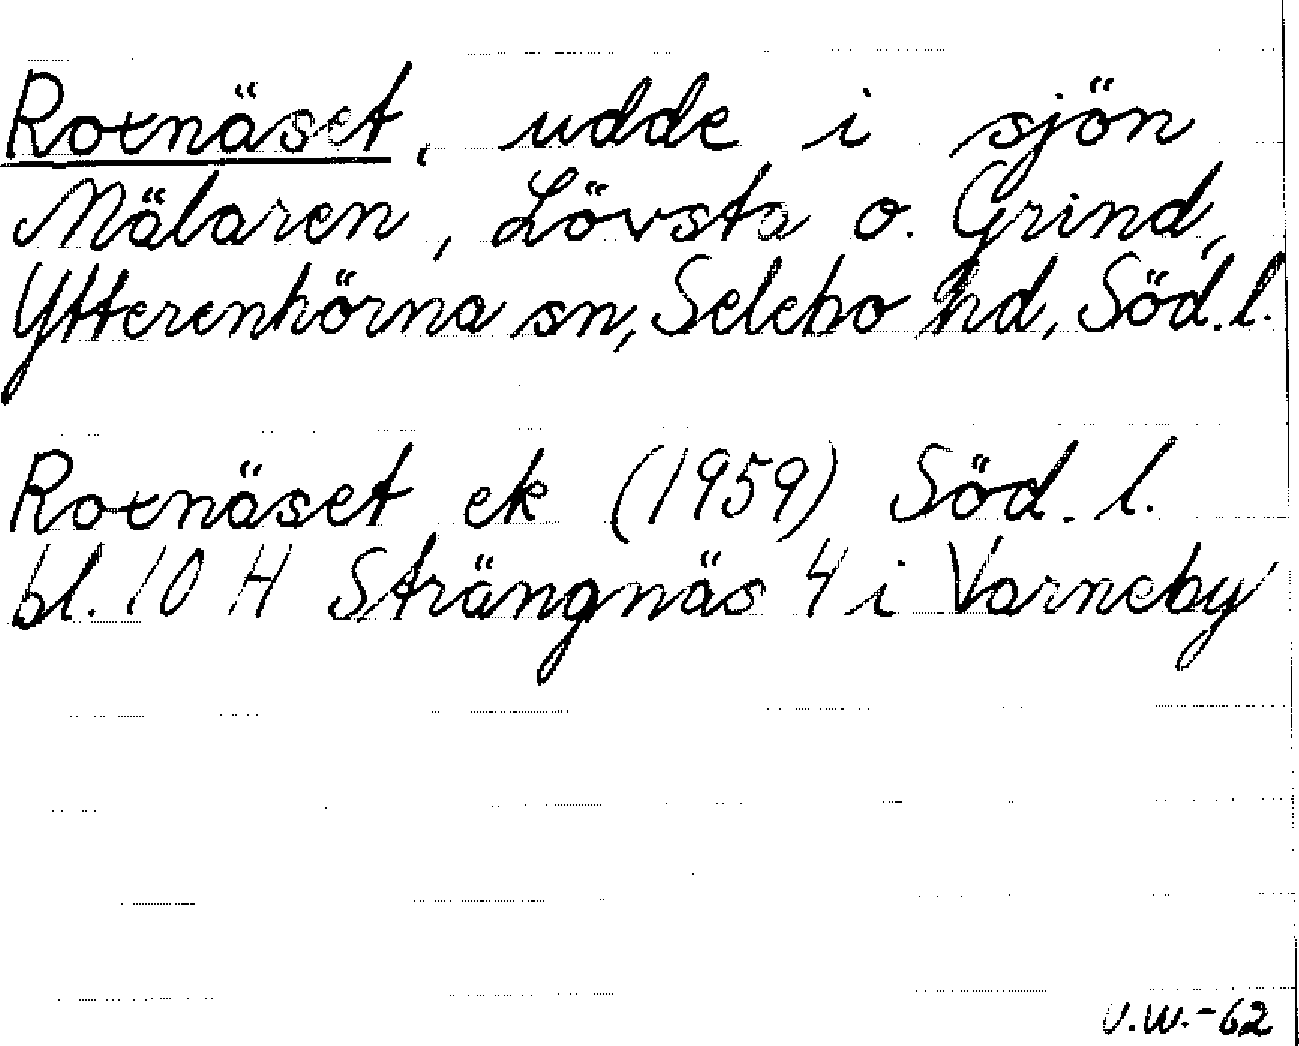 Roxnäset, udde i sjön
Mälaren, Lövsta o. Grind,
Ytterenhörna sn, Selebo hd, Söd. l.
Roxnäset ek (1959) Söd. l.
bl. 10 H Strängnäs 4 i Varneby
V.W.-62